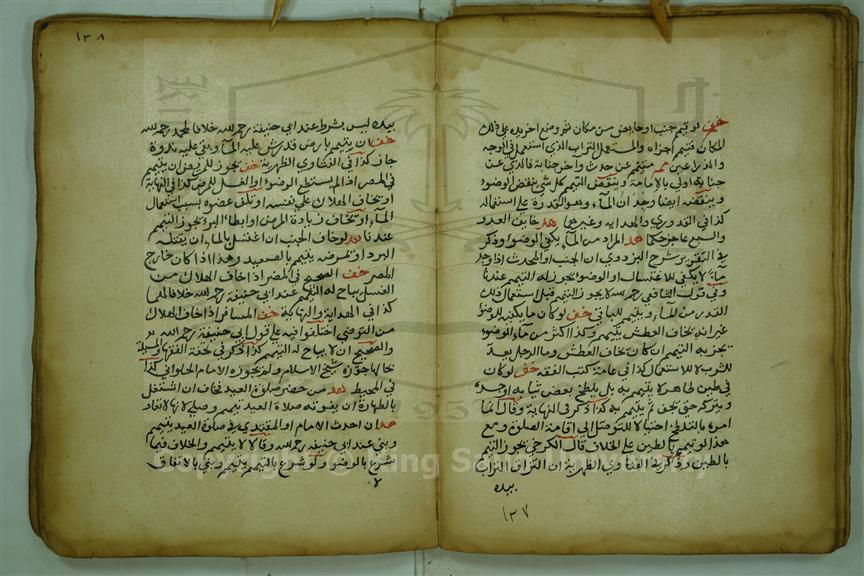 خف لو تيمم جنب او حايض من مكان ثم وضع اخر يده على ذلك
المكان فتيمم اجزاه والمستعمل التراب الذي استعمل في الوجه
والذراعين متيمم عن حدث وآخر جنابة فالذي عن
جنابة اولى بالامامة وينقض التيمم كل شي ينقض الوضوء
وينقضه ايضا وجدان الماء وهو القدرة على استعماله
كذا في القدوري والهداية وغيرهما هد خايف العدو
والسبع عاجز حكما هد المراد من الماء يكفي للوضوء وذكر
في شرح البزدوي ان الجنب او المحدث اذا وجد
ماء لا يكفي للاغتسال او الوضوء يجوز له التيمم عندنا
وفي قول الشافعي رحمه الله لا يجوز التيمم قبل استعمال ذلك
القدر من الماء ويتيمم للباقي خف لو كان ما يكفيه للوضوء
غير انه يخاف العطش يتيمم وكذا اكثر من ماء الوضوء
يجزيه التيمم ان كان يخاف العطش وما الرجل يعد
للشرب لا للاستعمال كذا في عامة كتب الفقه خف لو كان
في طين لا طاهر لا يتيمم به بل يلطخ بعض ثيابه او جسده
ويتركه حتى يجف ثم يتيمم به كذا ذكر في النهاية وقال انما
امره بالتلطخ احتيالا للتوصل الى اقامة الصلوة ومع
هذا لو تيمم بالطين على الخلاف قال الكرخي يجوز التيمم
بالطين وذكر في الفتاوي الظهرية ان التزاق التراب
بيده
١٣٧
١٣٨
بيده ليس بشرط عند ابي حنيفة رحمه الله خلافا لمحمد رحمه الله
خف ان تيمم بارض قد رش عليه الماء وبقي عليه ندوة
جاز كذا في الفتاوي الظهرية خف يجوز للمريض ان يتيمم
في المصر اذا لم يستطع الوضوء او الغسل للمرض كذا في النهاية
او يخاف الهلاك على نفسه او تلف عضوه بسبب استعمال
الماء او يخاف زيادة المرض او ابطاء البرء يجوز التيمم
عندنا هد لو خاف الجنب ان اغتسل بالماء ان يقتله
البرد او يمرضه يتيمم بالصعيد وهذا اذا كان خارج
المصر خف الصحيح في المصر اذا خاف الهلاك من
الغسل يباح له التيمم عند ابي حنيفة رحمه الله خلافا لهما
كذا في الهداية والنهاية خف المسافر اذا خاف الهلاك
من التوضي اختلفوا فيه على قول ابي حنيفة رحمه الله
والصحيح ان لا يباح له التيمم كذا ذكر في تحفة الفقهاء والمسئلة
بحالها جوزه شيخ الاسلام ولم يجوزه الامام الحلواني كذا
في المحيط هد من حضر صلوة العيد فخاف ان اشتغل
بالطهارة ان يفوته صلاة العيد تيمم وصلى لانها لا تعاد
هد ان احدث الامام او المقتدي في صلوة العيد يتيمم
وبنى عند ابي حنيفة رحمه الله وقالا لا يتيمم والخلاف فيما
شرع بالوضوء ولو شرع بالتيمم يتيمم وبنى بالاتفاق
Copyright © King Saud University
1957